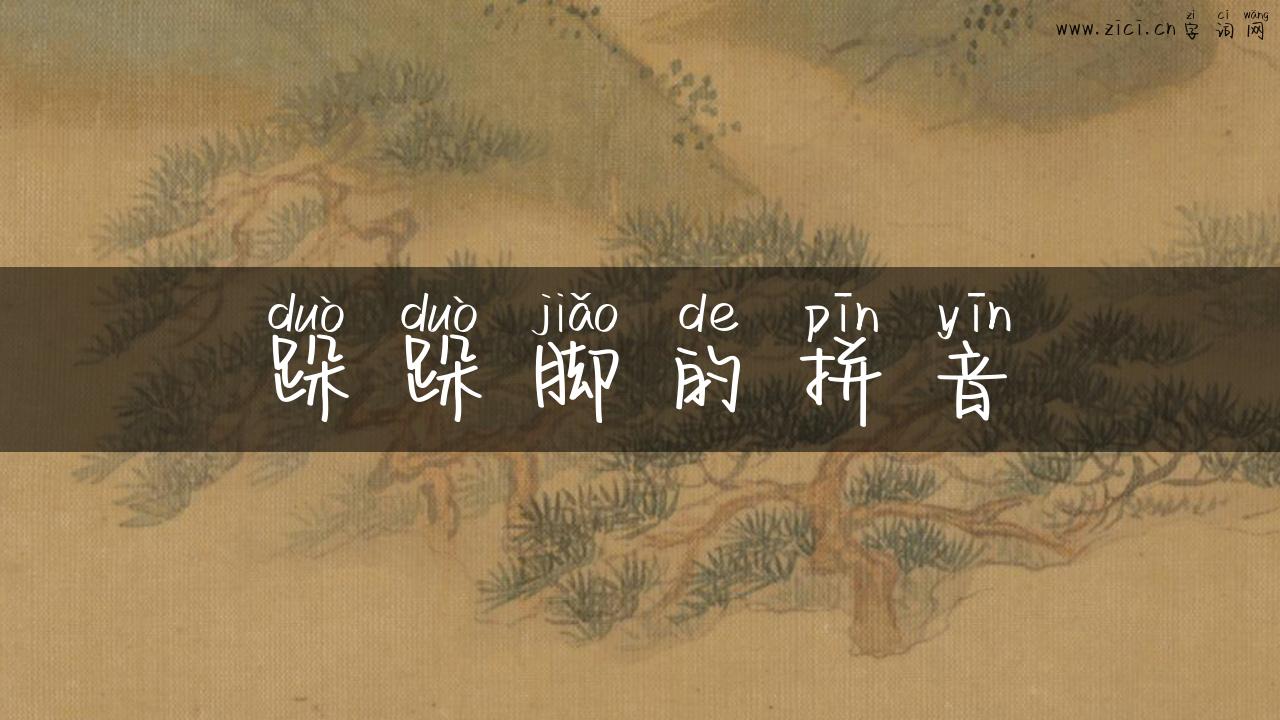 zì cí wǎng
www.zici.cn 字 词 网
duò duò jiǎo de pīn yīn
跺 跺 脚 的 拼 音